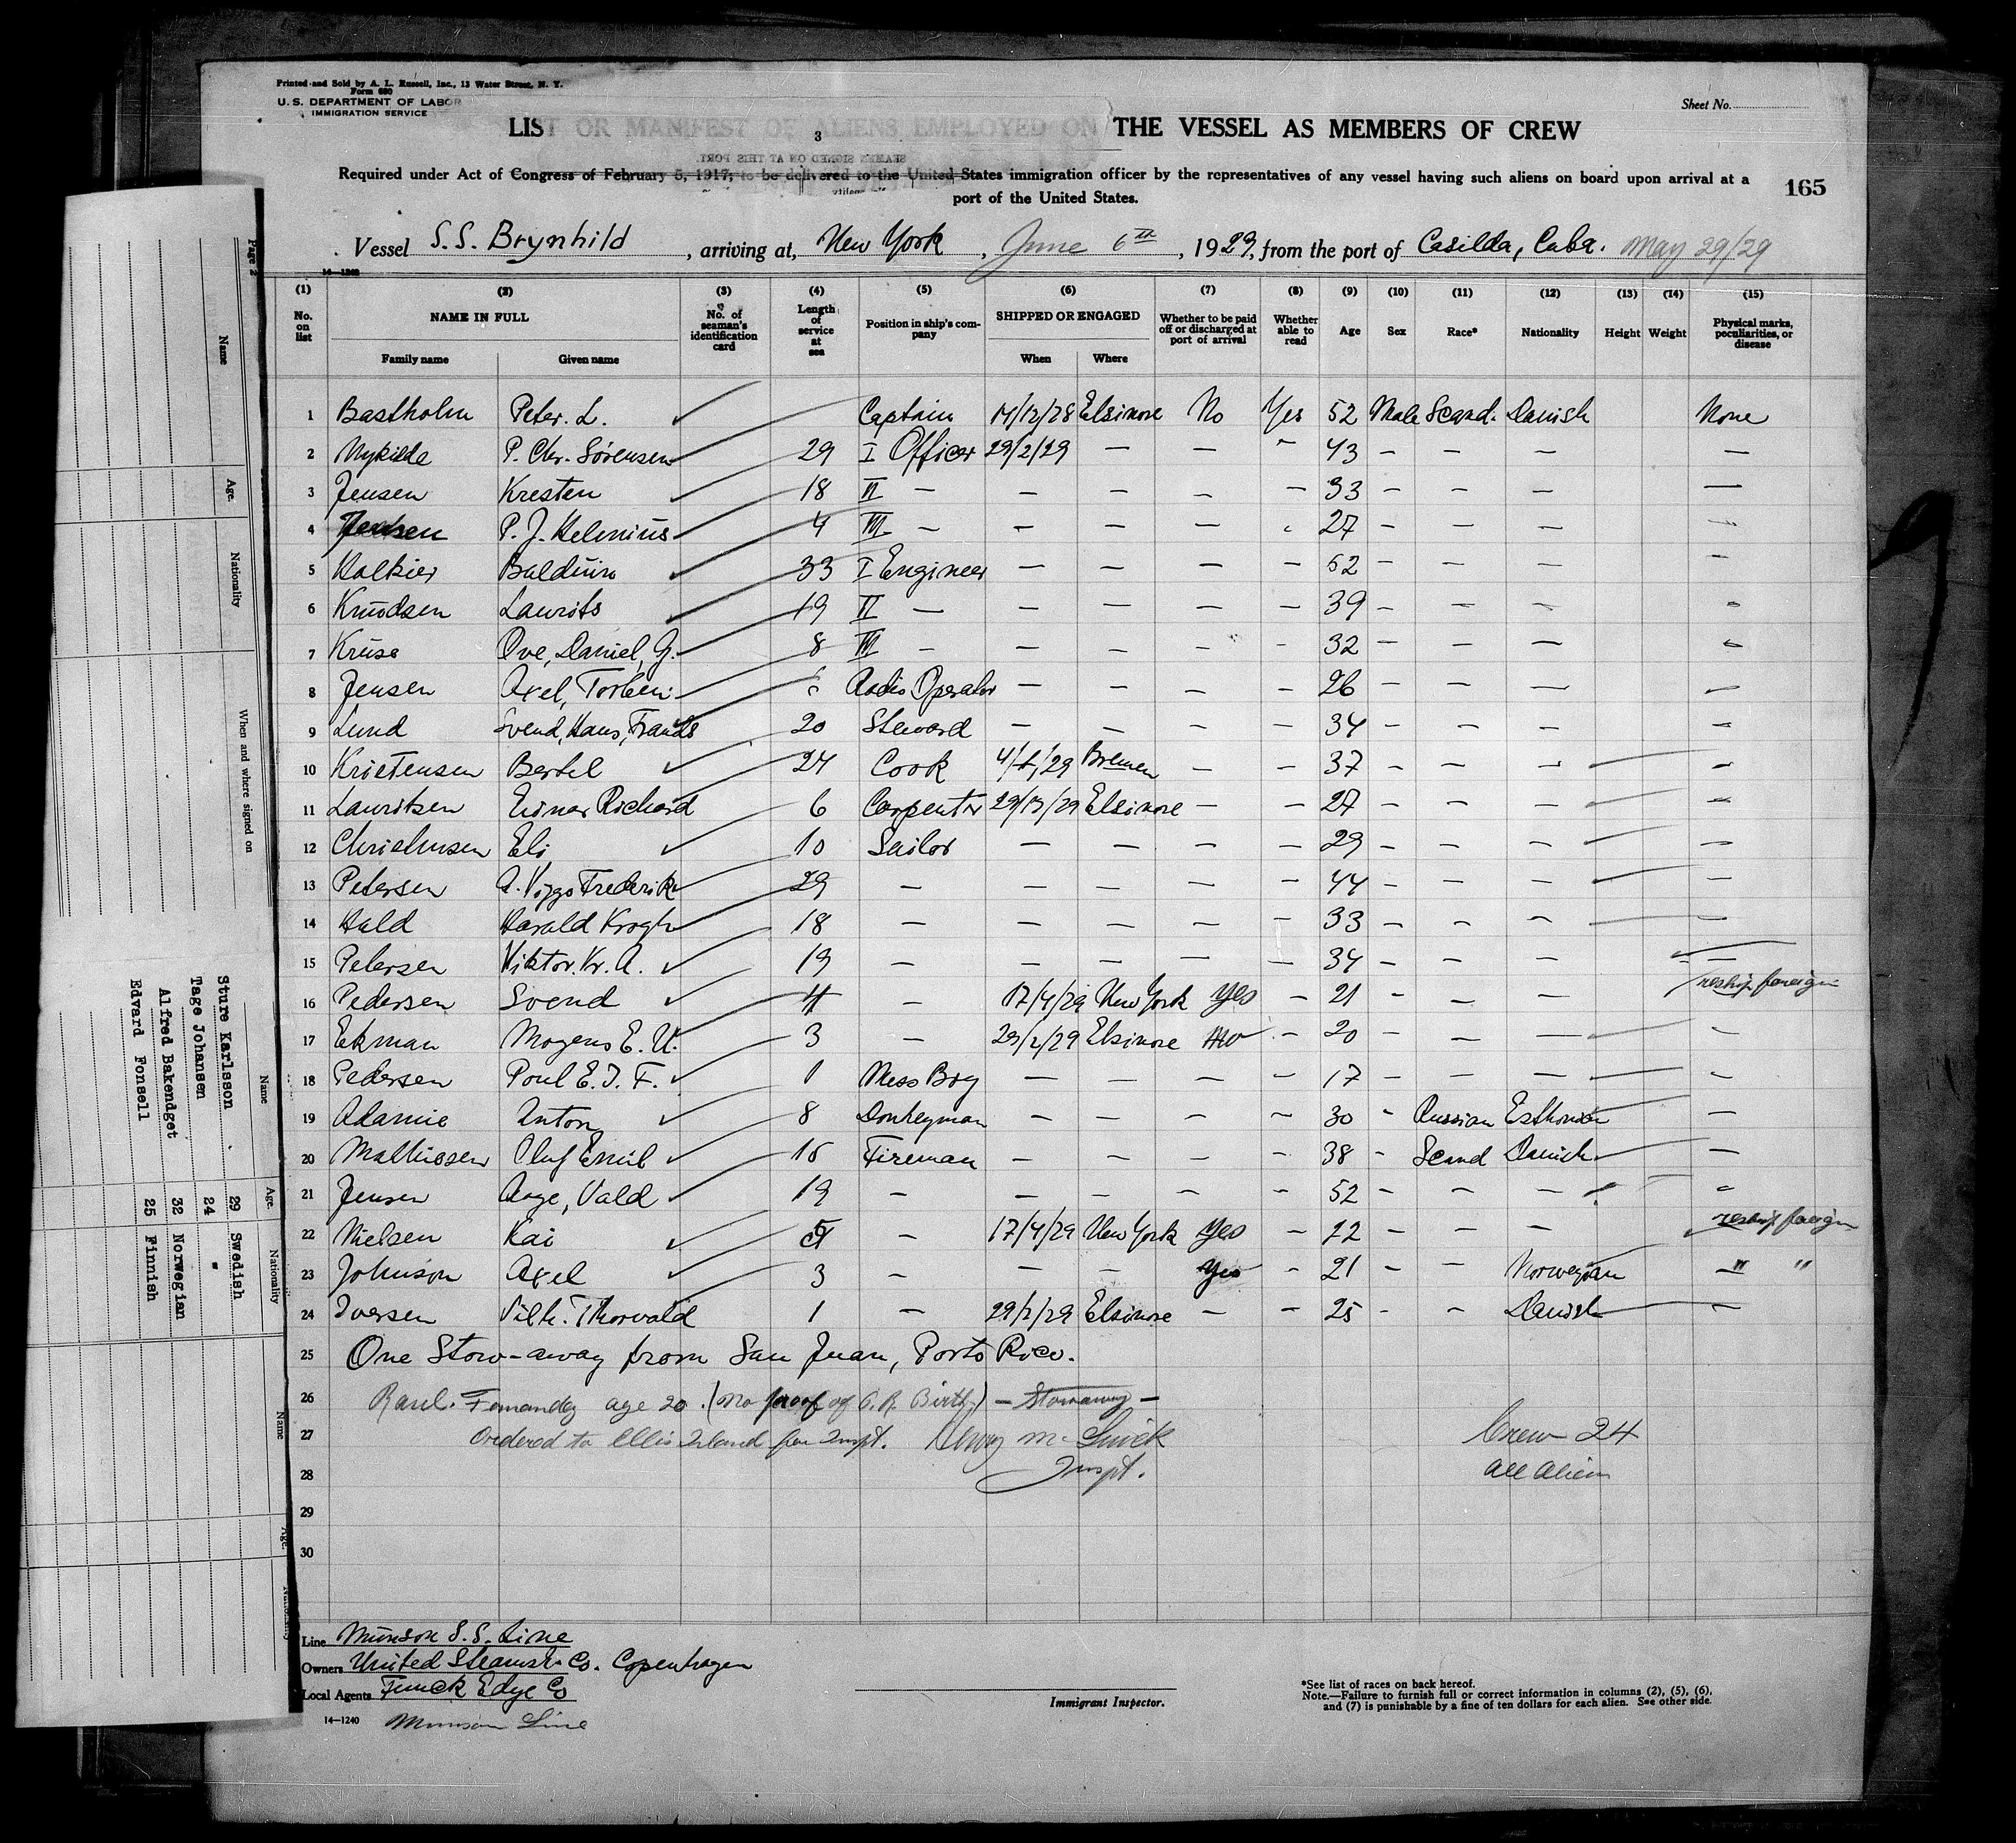 Printed and Sold by A. L. Russell, Inc., 13 Water Street, N. Y.
Form 680
U. S. DEPARTMENT OF LABOR
IMMIGRATION SERVICE
Sheet No.
LIST OR MANIFEST OF ALIENS EMPLOYED ON THE VESSEL AS MEMBERS OF CREW
3
SEAMEN SIGNED ON AT THIS PORT.
Required under Act of Congress of February 5, 1917, to be delivered to the United States immigration officer by the representatives of any vessel having such aliens on board upon arrival at a
port of the United States.
165
Vessel S.S. Brynhild, arriving at, New York, June 6th, 1929, from the port of Casilda, Cuba. May 29/29
14—1240
(1) (2) (3) (4) (5) (6) (7) (8) (9) (10) (11) (12) (13) (14) (15)
No. on list NAME IN FULL No. of seaman's identification card Length of service at sea Position in ship's company SHIPPED OR ENGAGED Whether to be paid off or discharged at port of arrival Whether able to read Age Sex Race* Nationality Height Weight Physical marks, peculiarities, or disease
Family name Given name When Where
1 Bastholm Peter. L. Captain 14/12/28 Elsinore No Yes 52 Male Scand. Danish None
2 Nykilde P. Chr. Sörensen 29 I Officer 29/2/29 — — - 43 — — — —
3 Jensen Kresten 18 II — — — — — 33 — — — —
4 Jensen P. J. Helenius 4 III — — — — 27 — — — —
5 Kalkier Balduin 33 I Engineer — — — — 52 — — — —
6 Knudsen Laurits 19 II — — — — — 39 — — — —
7 Kruse Ove, Daniel, G. 8 III — — — — - 32 — — — —
8 Jensen Axel, Torben Radio Operator — — — - 26 — — — —
9 Lund Svend, Hans, Frands 20 Steward — — — - 34 — — — —
10 Kristensen Bertel 24 Cook Bremen — — 37 — — — —
11 Lauritsen Einar Richard 6 Carpenter Elsinore — — 27 — — — —
12 Christensen Eli 10 Sailor — — — — 29 — — — —
13 Petersen A. Viggo Frederik 29 — — — — — 44 — — — —
14 Hald Harald Krogh 18 — — — — - 33 — — — —
15 Petersen Viktor. Kr. A. 19 — — — — — 34 — — — —
16 Pedersen Svend 4 — 17/4/29 New York Yes — 21 — — — reship foreign
17 Ekman Mogens E. U. 3 — 29/2/29 Elsinore No - 20 — — — —
18 Pedersen Poul E. J. F. 1 Mess Boy — — — — 17 — — — —
19 Adamie Anton 8 Donkeyman — — — — 30 - Russian Esthonian —
20 Mathiesen Oluf Emil 15 Fireman — — — - 38 - Scand Danish —
21 Jensen Aage, Vald 19 — — — — — 52 — — — —
22 Nielsen Kai 5 — 17/4/29 New York Yes — 22 — — — reship foreign
23 Johnson Axel 3 — — — Yes — 21 — — Norwegian " "
24 Iversen Vilh. Thorvald 1 — 29/2/29 Elsinore — — 25 — — Danish —
25 One Stow-away from San Juan, Porto Rico.
26 Raul. Fernandez age 20. (no proof of P. R. Birth) — Stowaway —
27 Ordered to Ellis Island for Inspt.
28 Inspt.
29
30
Crew 24
all aliens
Line Munson S.S. Line
Owners United Steamsh. Co. Copenhagen
Local Agents Funck Edye Co
14—1240 Munson Line
Immigrant Inspector.
*See list of races on back hereof.
Note.—Failure to furnish full or correct information in columns (2), (5), (6),
and (7) is punishable by a fine of ten dollars for each alien. See other side.
Page 2
Name Age. Nationality When and where signed on
Name Age. Nationality
Sture Karlsson 29 Swedish
Tage Johansen 24 "
Alfred Bakendget 32 Norwegian
Edvard Fonsell 25 Finnish
Name Age.